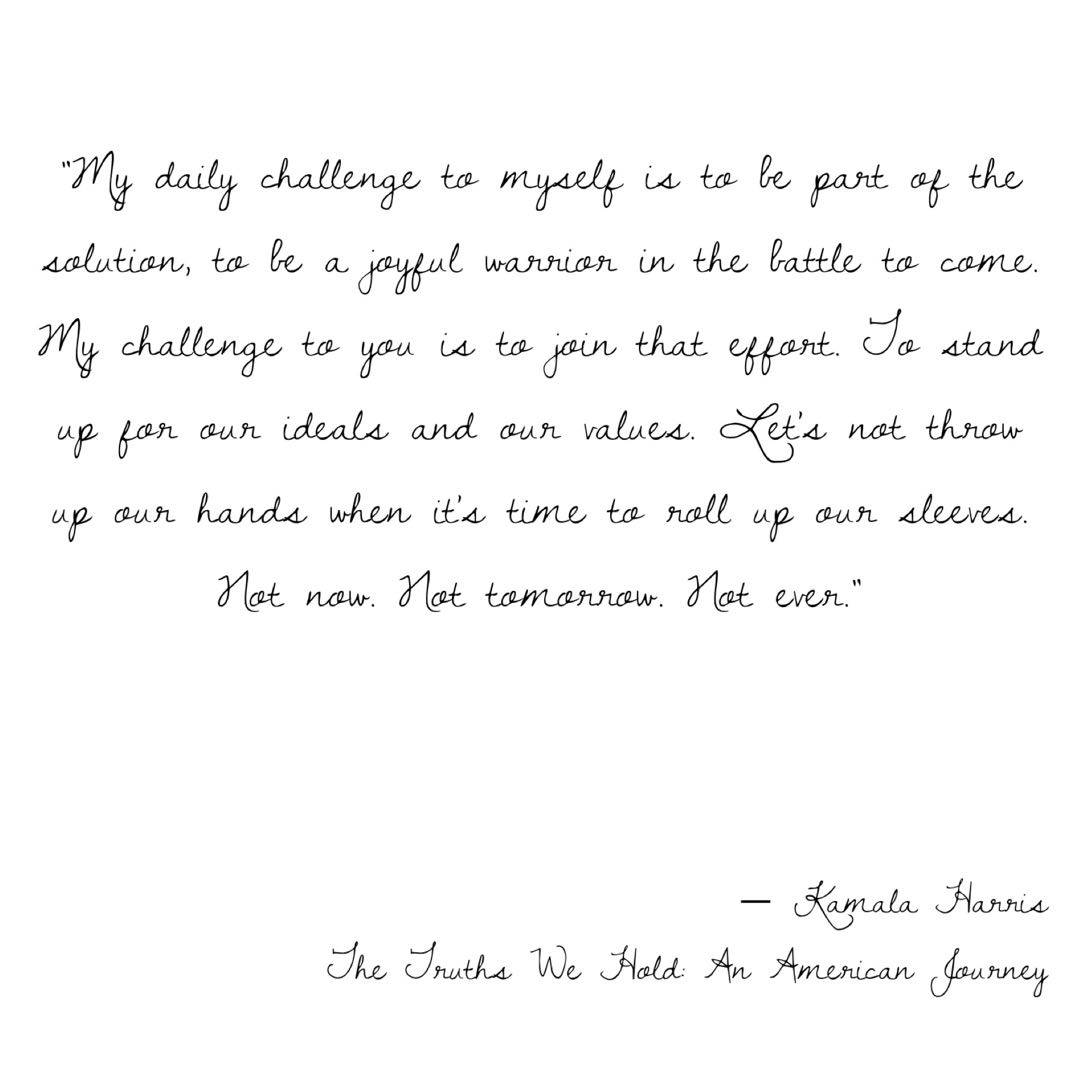 "My daily challenge to myself is to be part of the
solution, to be a joyful warrior in the battle to come.
My challenge to you is to join that effort. To stand
up for our ideals and our values. Let's not throw
up our hands when it's time to roll up our sleeves.
Not now. Not tomorrow. Not ever."
— Kamala Harris
The Truths We Hold: An American Journey